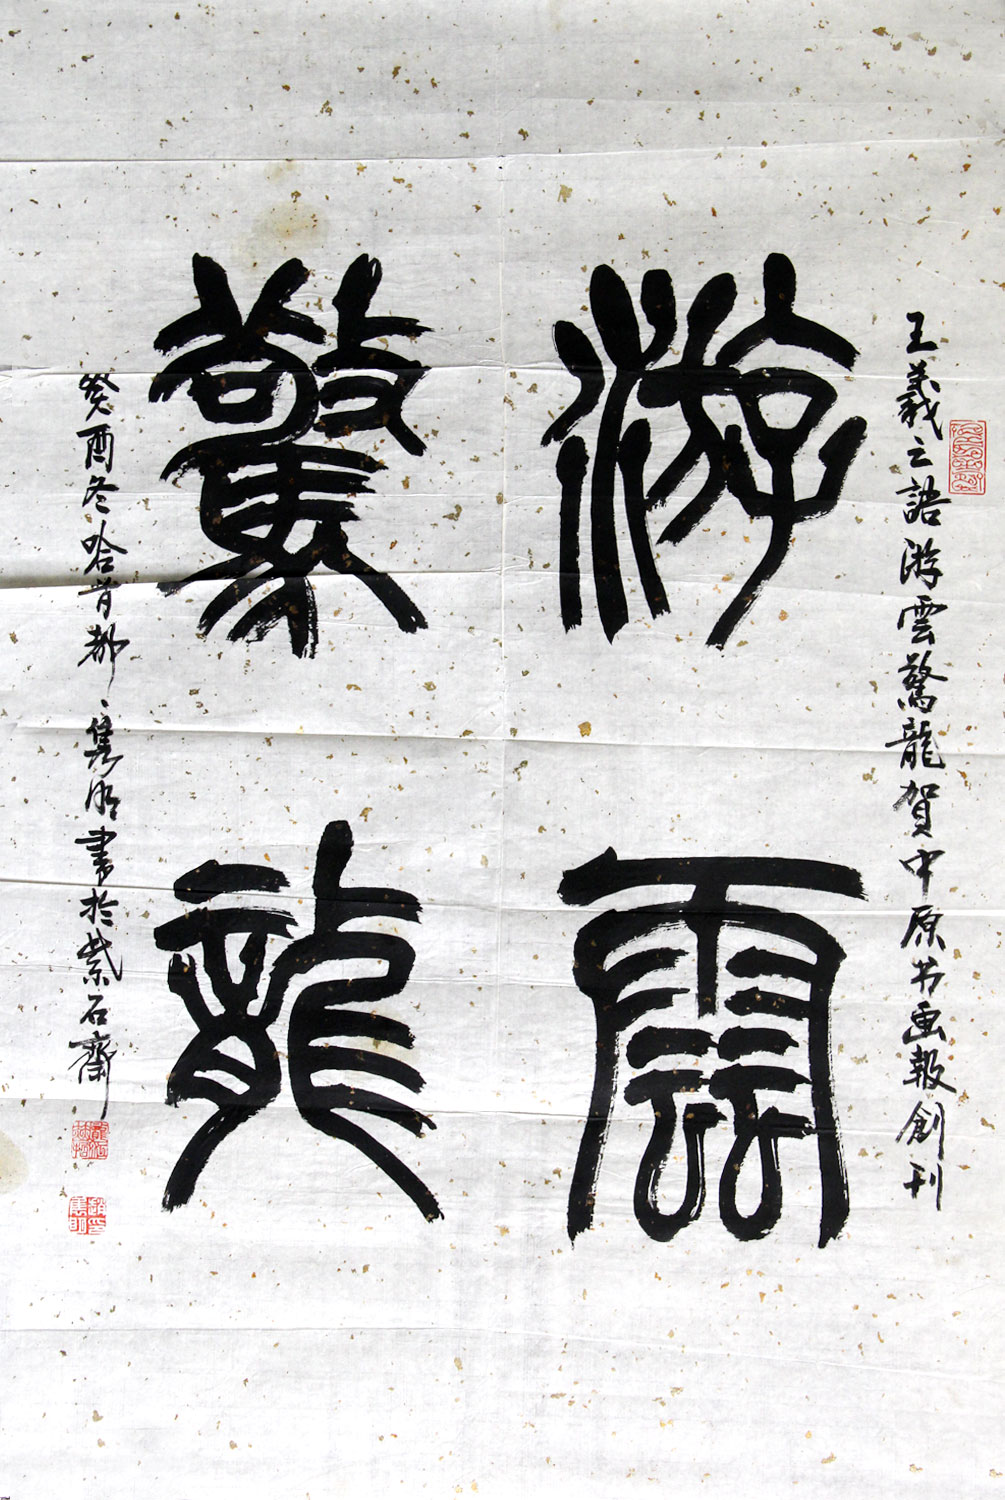 王羲之語游雲驚龍賀中原书画報創刊
游雲
驚龍
癸酉冬 都 隽明書於紫石齋